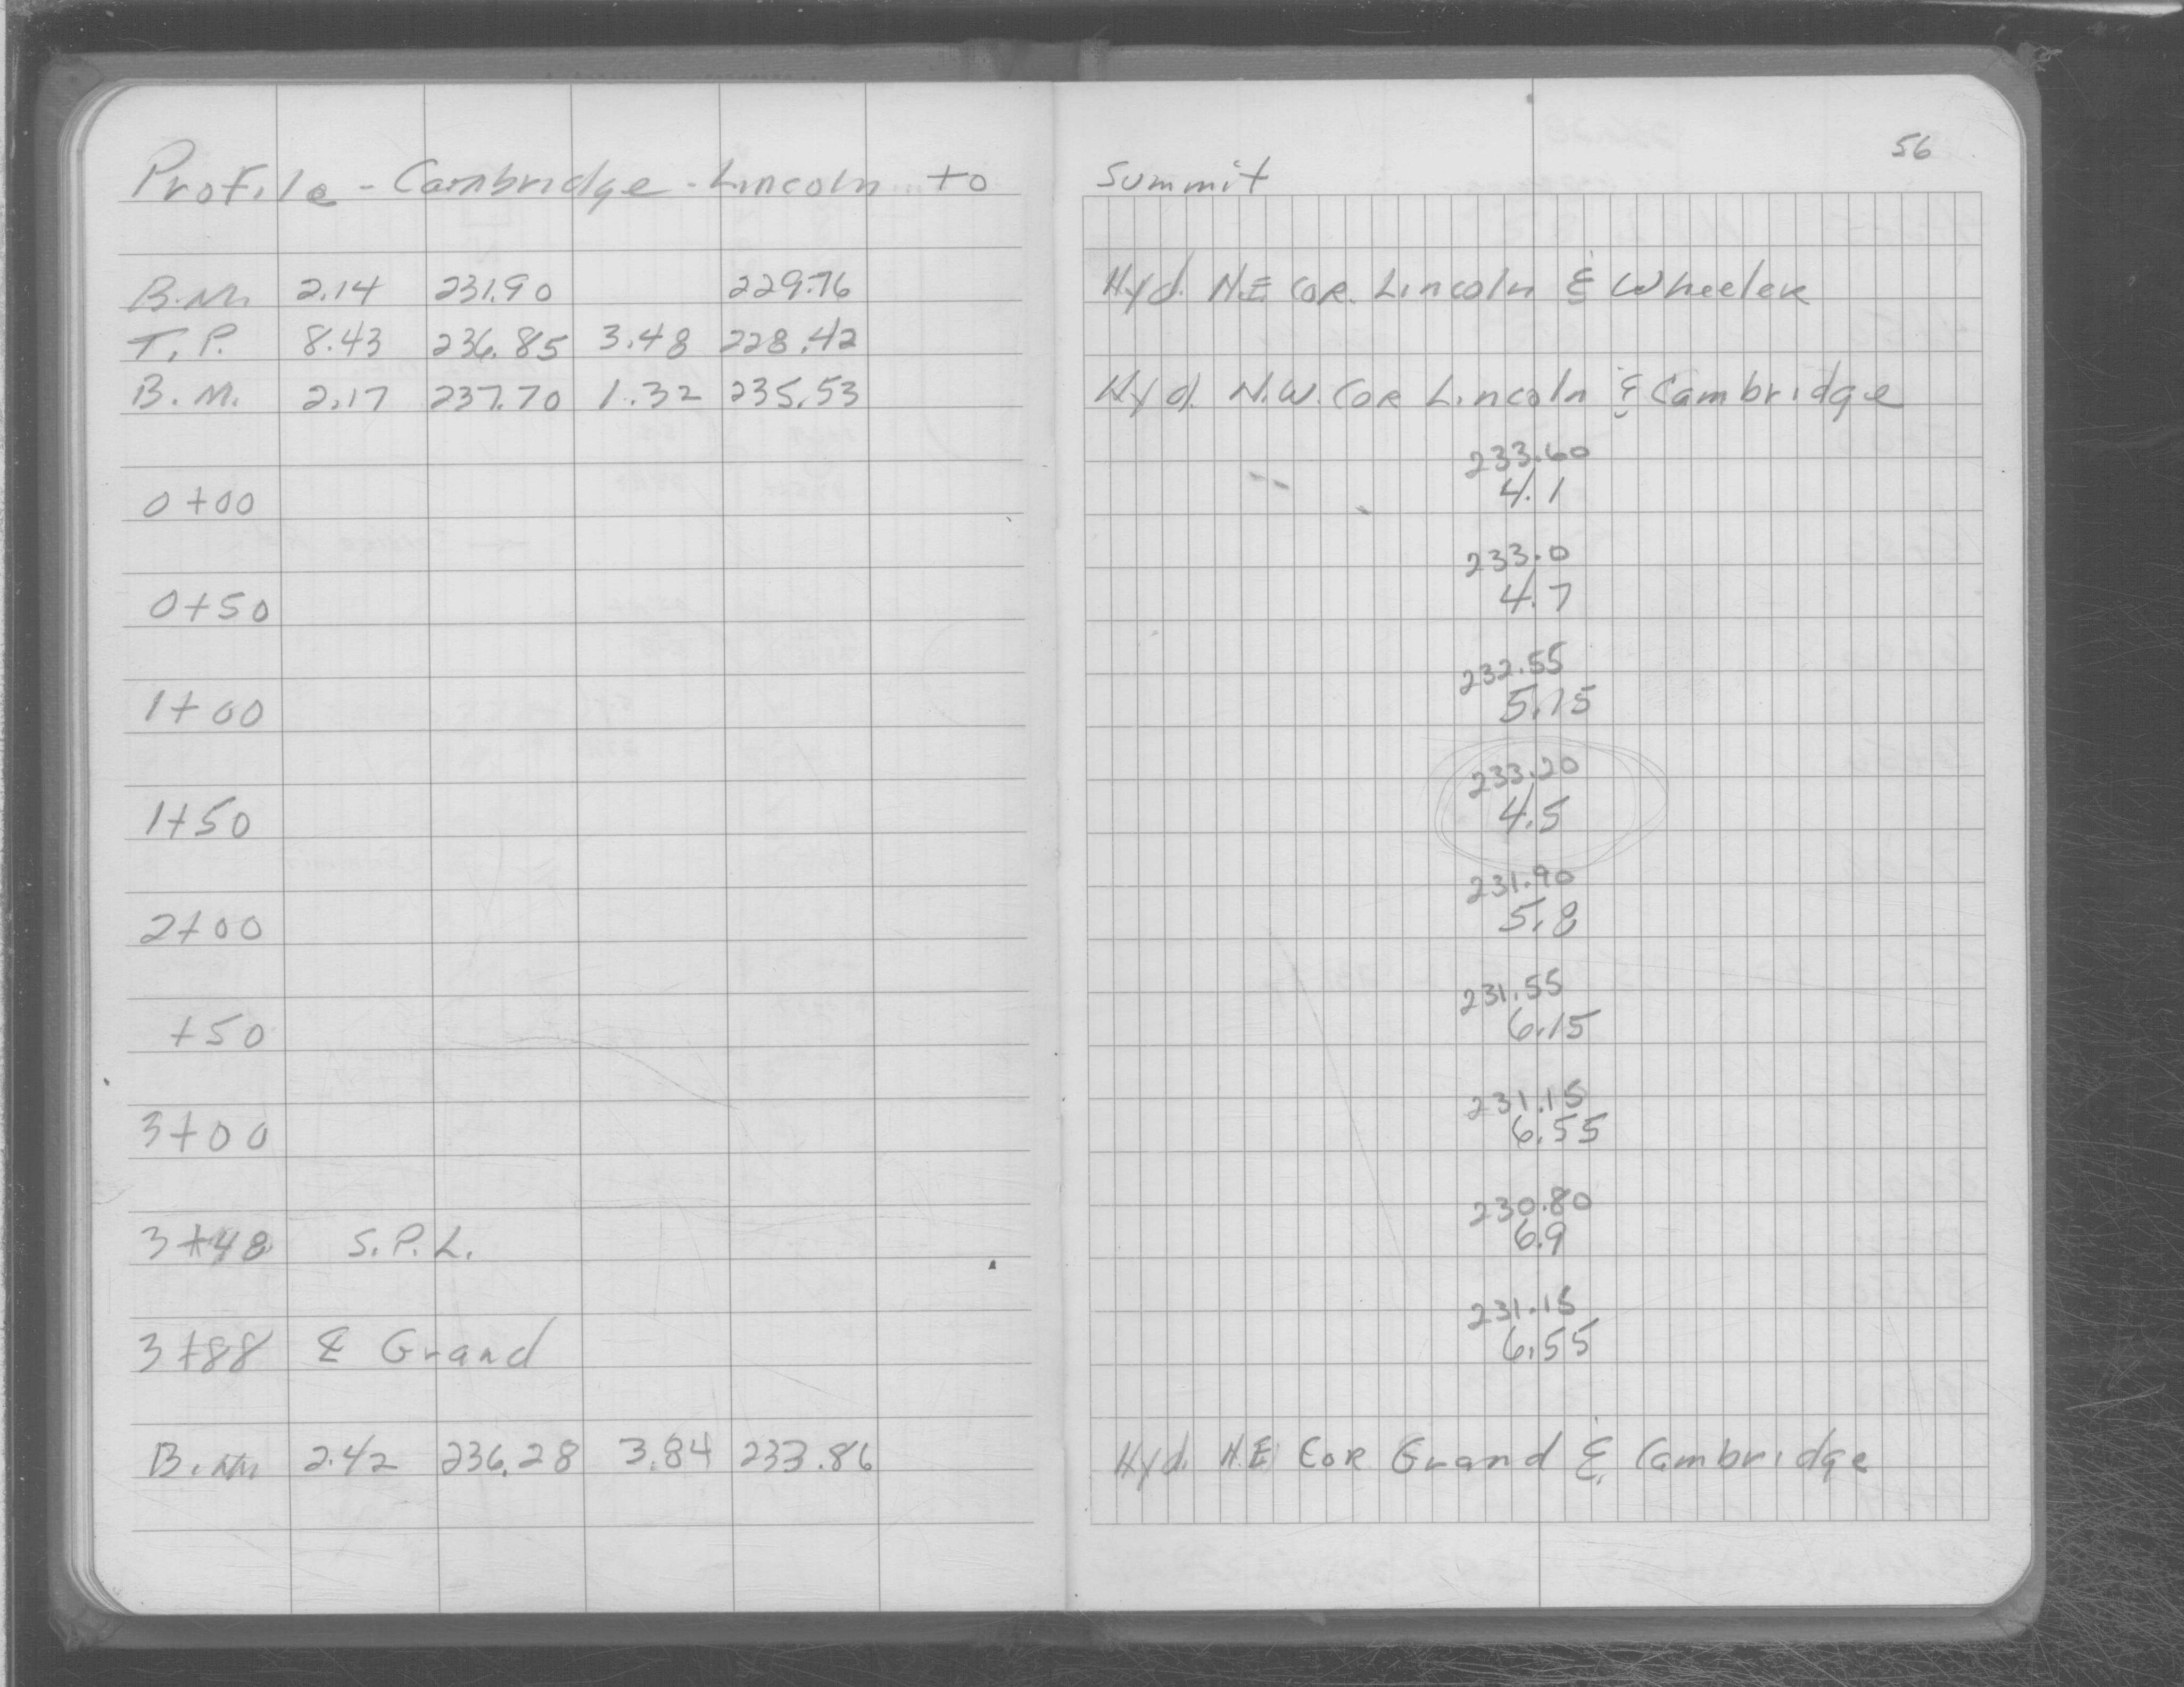 56
Profile - Cambridge - Lincoln to Summit
B.M. 2.14 231.90 229.76 Hyd. N.E Cor. Lincoln & Wheeler
T.P. 8.43 236.85 3.48 228.42
B.M. 2.17 237.70 1.32 235.53 Hyd. N.W. Cor Lincoln & Cambridge
233.60
0+00 4.1
233.0
0+50 4.7
232.55
1+00 5.15
233.20
1+50 4.5
231.90
2+00 5.8
231.55
+50 6.15
231.15
3+00 6.55
230.80
3+48 S.P.L. 6.9
231.15
3+88 & Grand 6.55
B.M 2.42 236.28 3.84 233.86 Hyd. N.E Cor Grand & Cambridge